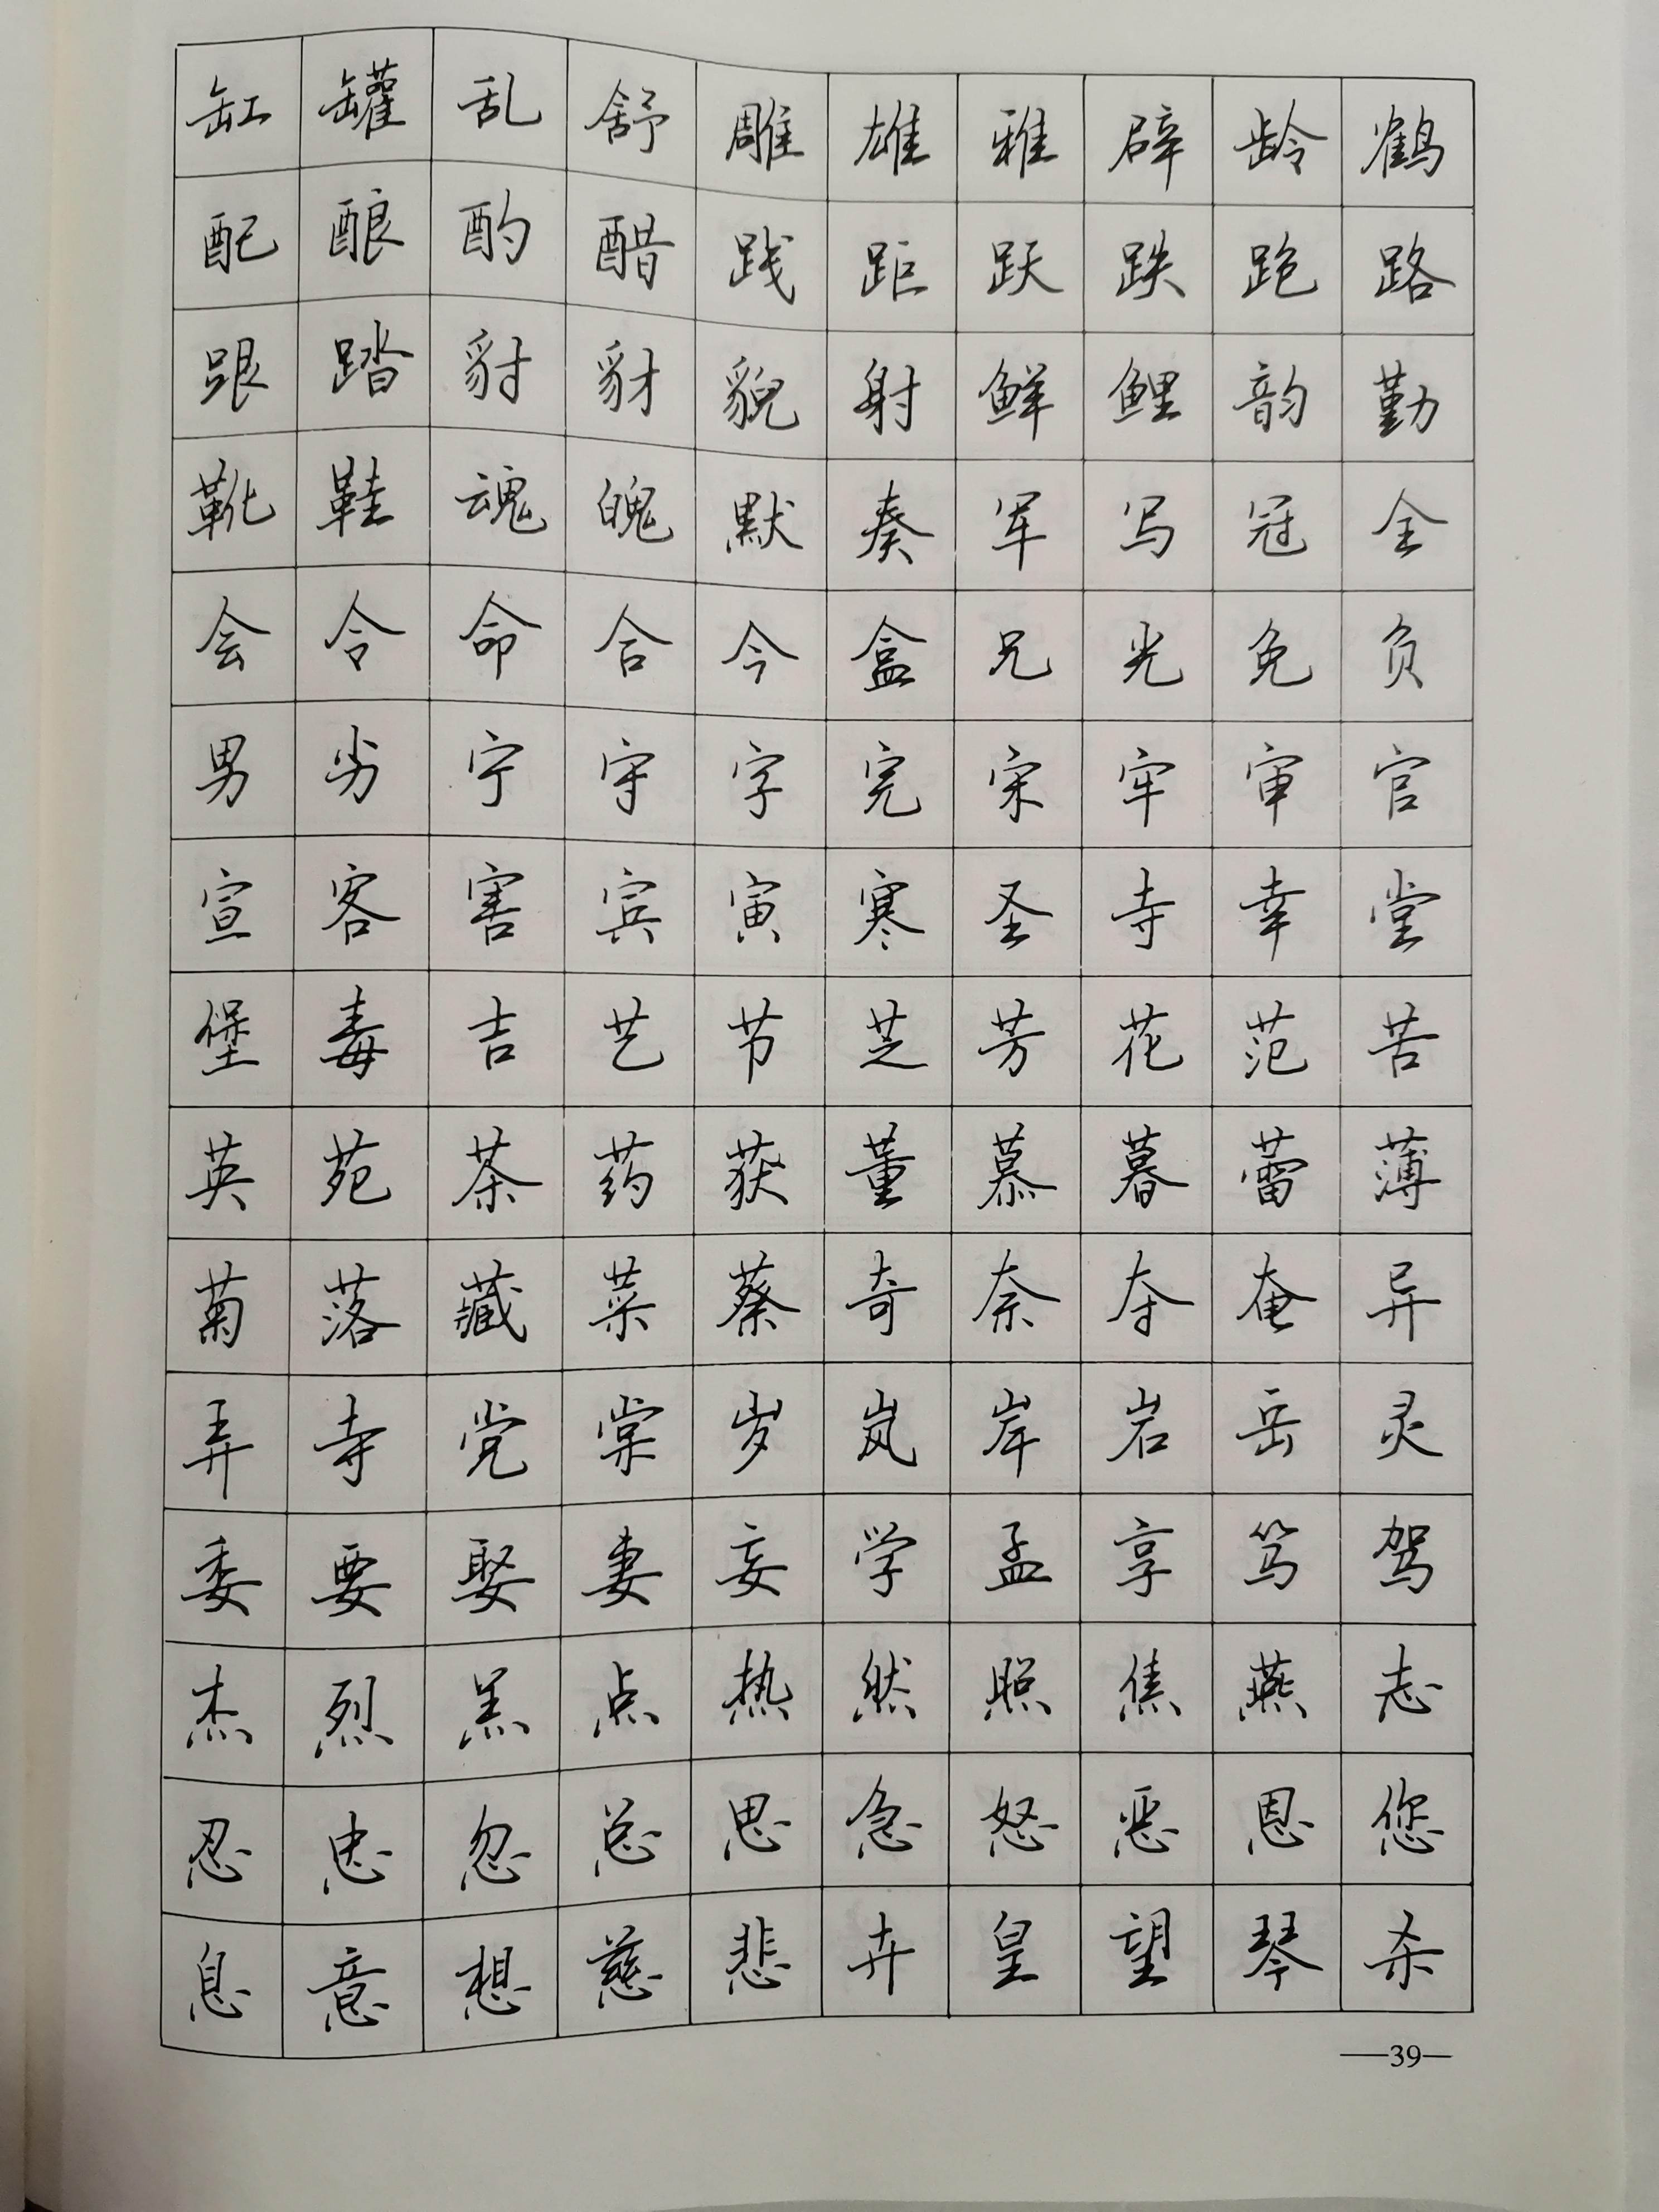 缸罐乱舒雕雄雅辟龄鹤
配酿酌醋践距跃跌跑路
跟踏豺豺貌射鲜鲤韵勤
靴鞋魂魄默奏军写冠全
会令命合今盒兄光免负
男劣宁守字完宋牢审官
宣客害宾寅寒圣寺幸堂
堡毒吉艺节芝芳花范苦
英苑茶药获董慕暮蕾薄
菊落藏菜蔡奇奈夺奄异
弄寺党棠岁岚岸岩岳灵
委要娶妻妄学孟享笃驾
杰烈羔点热然照焦燕志
忍忠忽总思急怒恶恩您
息意想慈悲卉皇望琴杀
—39—